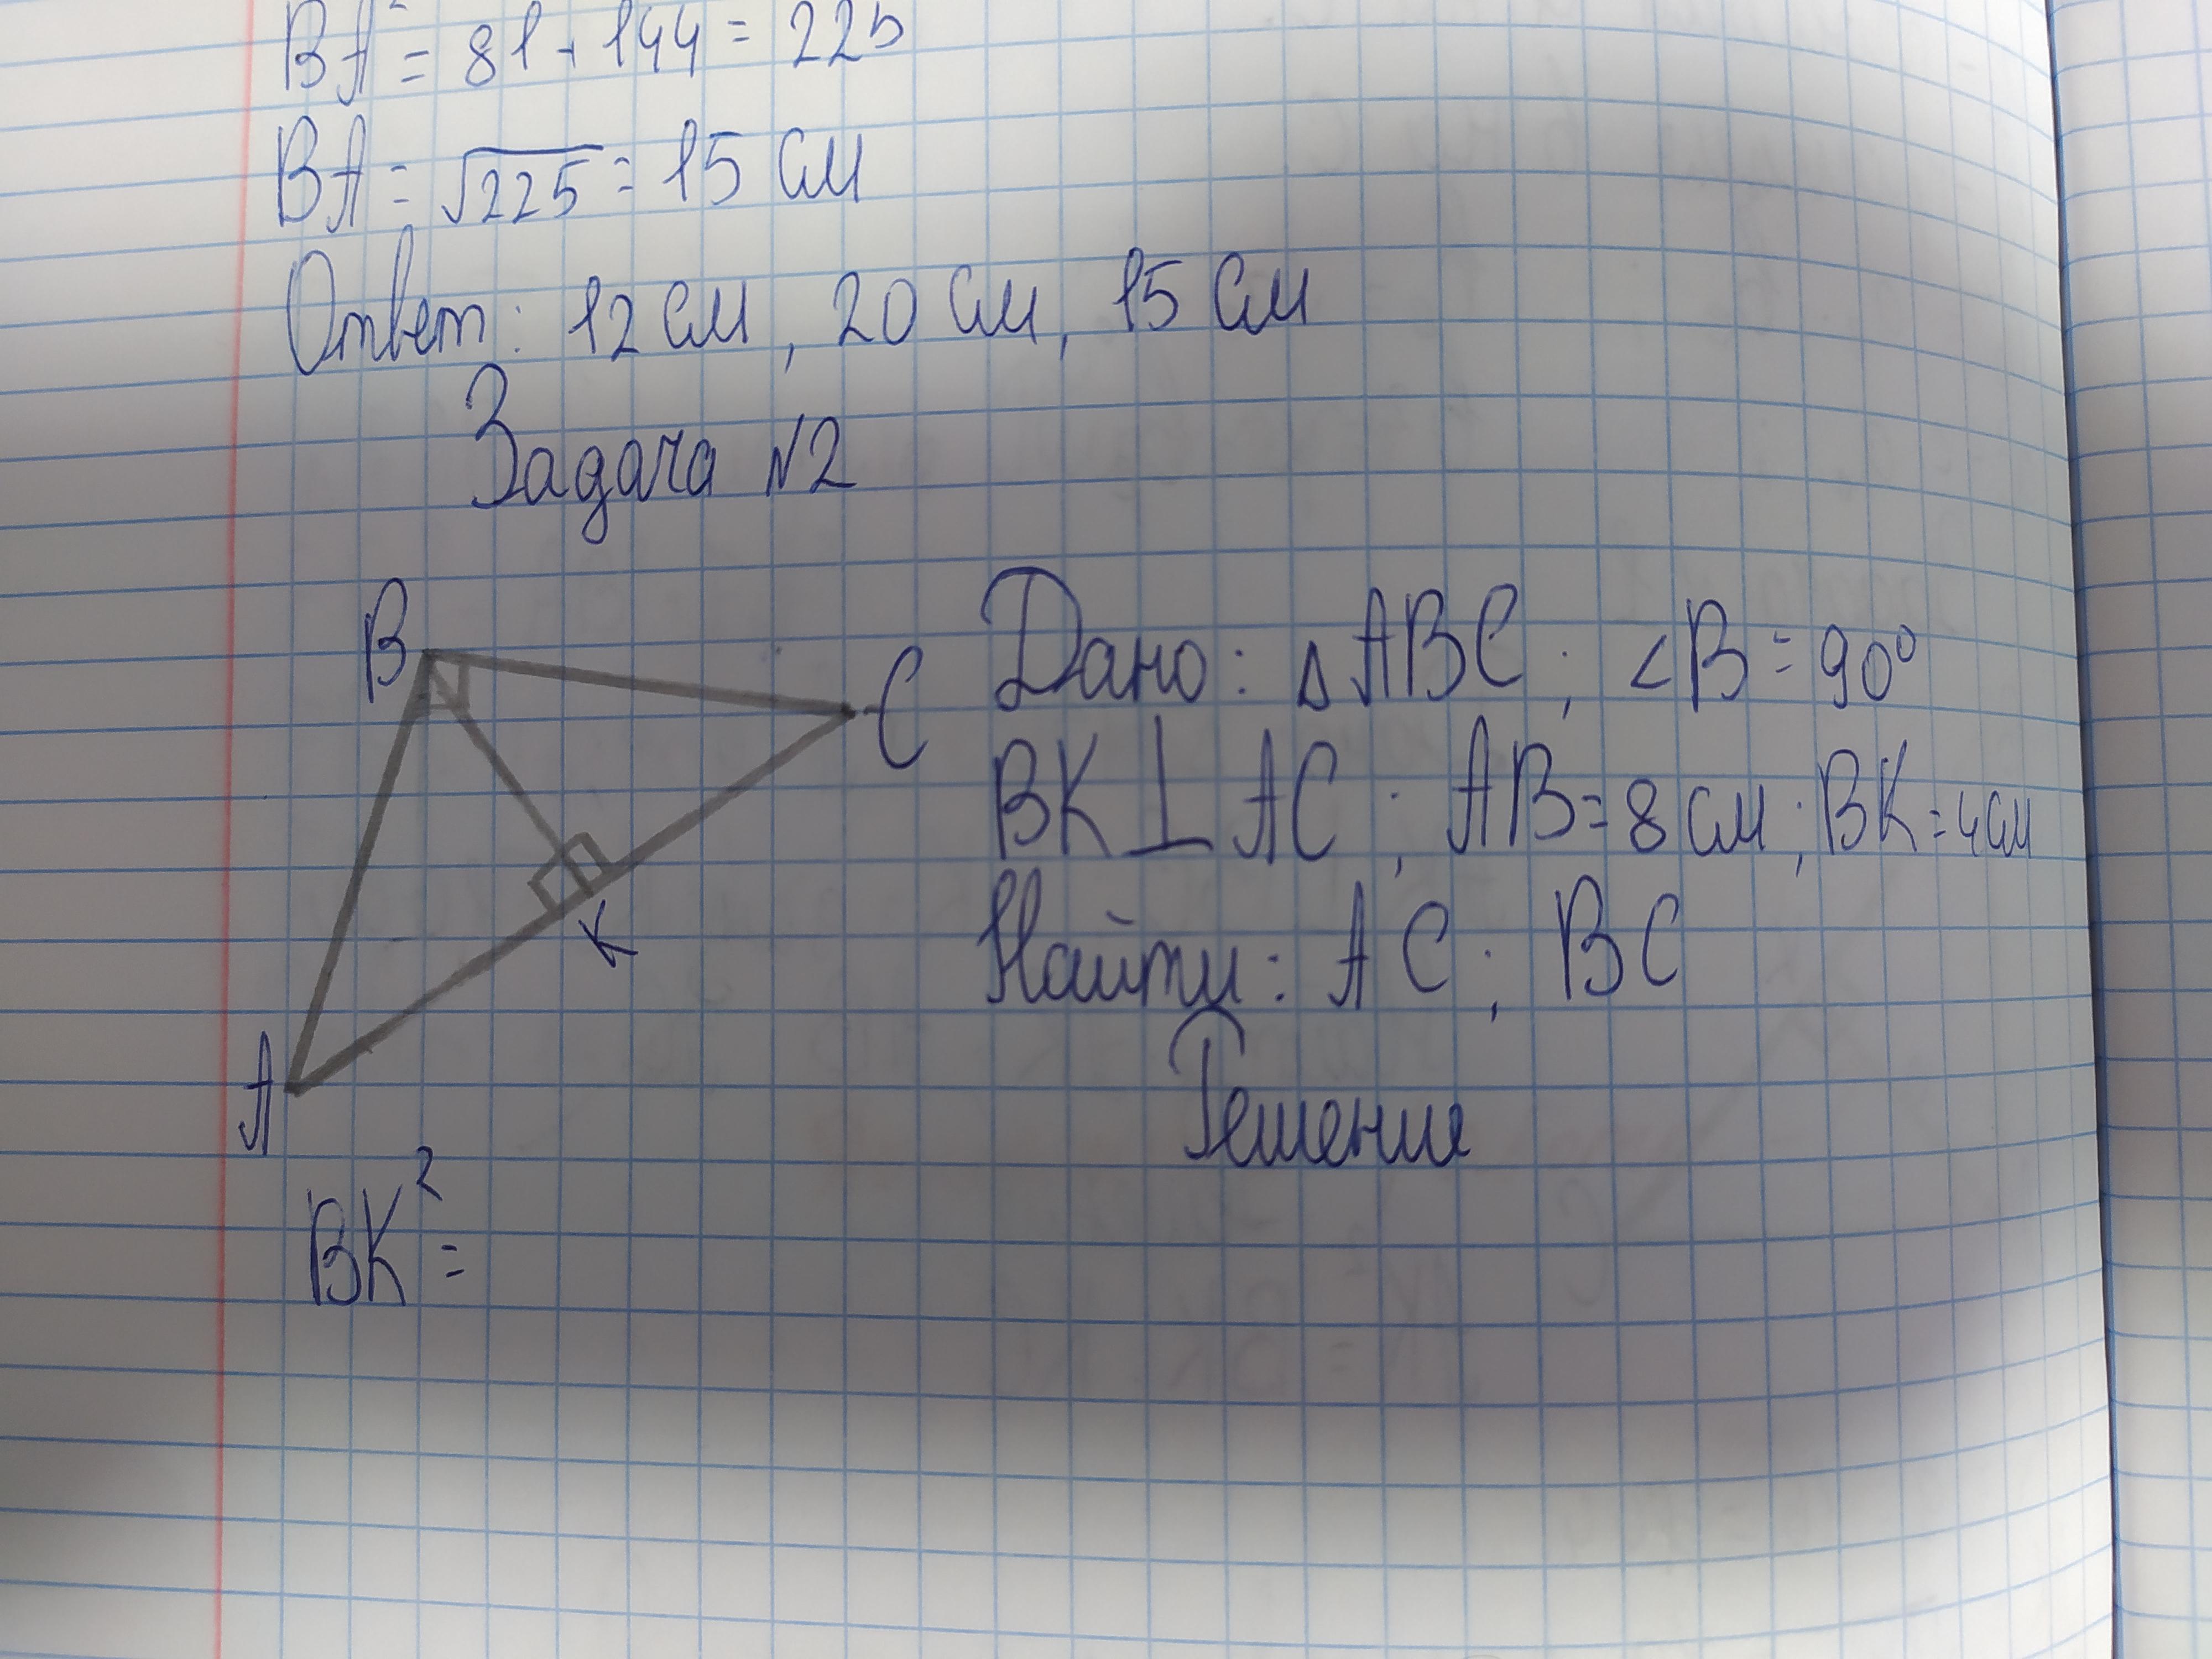 BA² = 81 + 144 = 225
BA = √225 = 15 см
Ответ: 12 см, 20 см, 15 см
Задача №2
B
C
K
A
Дано: △ABC; ∠B = 90°
BK ⊥ AC; AB = 8 см; BK = 4 см
Найти: AC; BC
Решение
BK² =